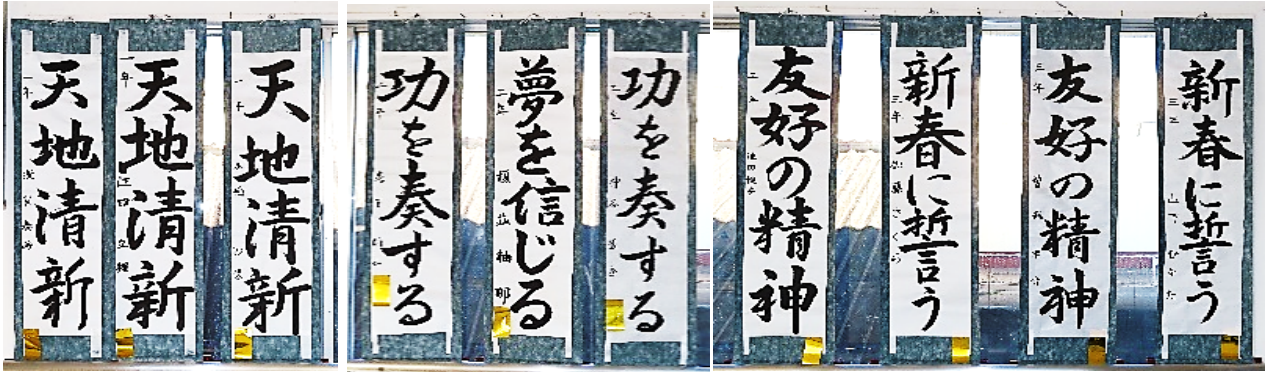 天地清新
天地清新
天地清新
功を奏する
夢を信じる
功を奏する
友好の精神
新春に誓う
友好の精神
新春に誓う